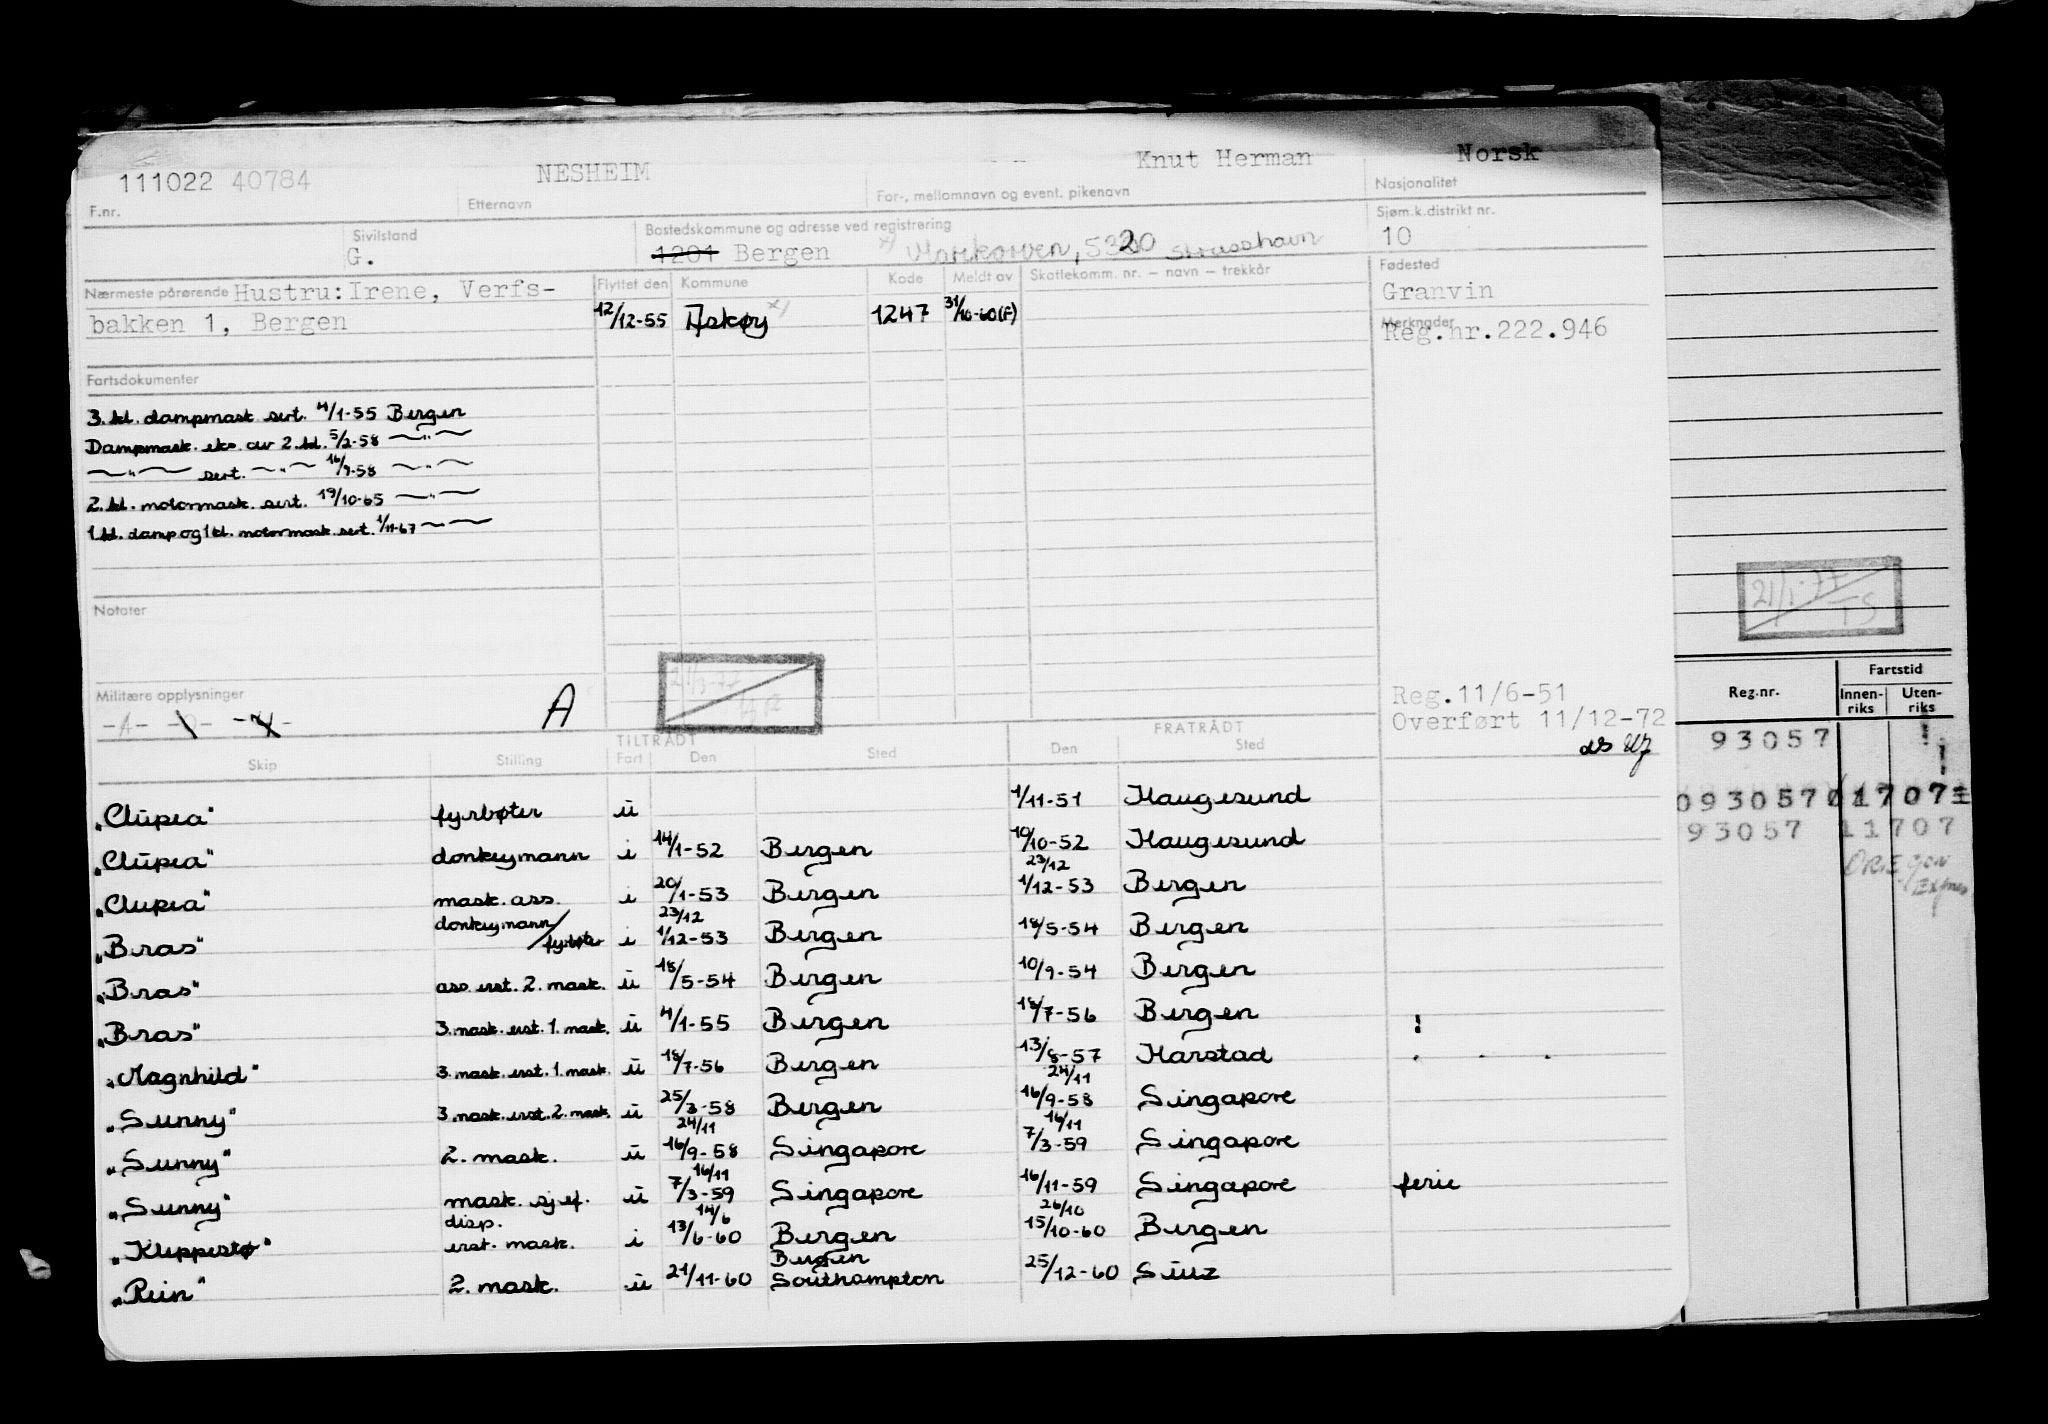 111022 40784 NESHEIM Knut Herman Norsk
F.nr. Etternavn For-, mellomnavn og event. pikenavn Nasjonalitet
Sivilstand Bostedskommune og adresse ved registrering Sjøm.k.distrikt nr.
G. 1201 Bergen x) 5320 10
Nærmeste pårørende Hustru:Irene, Verfs- Flyttet den Kommune Kode Meldt av Skattekomm. nr. – navn – trekkår Fødested
Granvin
bakken 1, Bergen 12/12-55 Askøy x) 1247 31/10-60(F) Merknader
Reg.nr.222.946
Fartsdokumenter
3. kl. dampmask sert. 4/1-55 Bergen
Dampmask. eks. av 2. kl. 5/2-58 —"—
—"— sert. —"— 16/9-58 —"—
2. kl. motormask. sert. 19/10-65 —"—
1. kl. damp og 1 kl. motormask. sert. 1/11-67 —"—
Notater
Militære opplysninger Reg.11/6-51
-A- A Overført 11/12-72
TILTRÅDT FRATRÅDT
Skip Stilling Fart Den Sted Den Sted
"Clupea" fyrbøter u 1/11-51 Haugesund
"Clupea" donkeymann i 14/1-52 Bergen 10/10-52 Haugesund
"Clupea" mask. ass. i 20/1-53 Bergen 23/12 1/12-53 Bergen
"Bras" donkeymann/fyrbøter i 23/12 1/12-53 Bergen 18/5-54 Bergen
"Bras" ass. erst. 2. mask. u 18/5-54 Bergen 10/9-54 Bergen
"Bras" 3. mask. erst. 1. mask. u 4/1-55 Bergen 18/7-56 Bergen
"Magnhild" 3. mask. erst. 1. mask. u 18/7-56 Bergen 13/8-57 Harstad
"Sunny" 3. mask. erst. 2. mask. u 25/3-58 Bergen 24/11 16/9-58 Singapore
"Sunny" 2. mask. u 24/11 16/9-58 Singapore 16/11 7/3-59 Singapore
"Sunny" mask. sjef. u 16/11 7/3-59 Singapore 16/11-59 Singapore ferie
"Kleppestø" disp. erst. mask. i 14/6 13/6-60 Bergen 26/10 15/10-60 Bergen
"Rein" 2. mask. u 21/11-60 Bergen Southampton 25/12-60 Suez
21/1-77
TS
Reg.nr. Fartstid
Innen-riks Uten-riks
93057
93057 11707